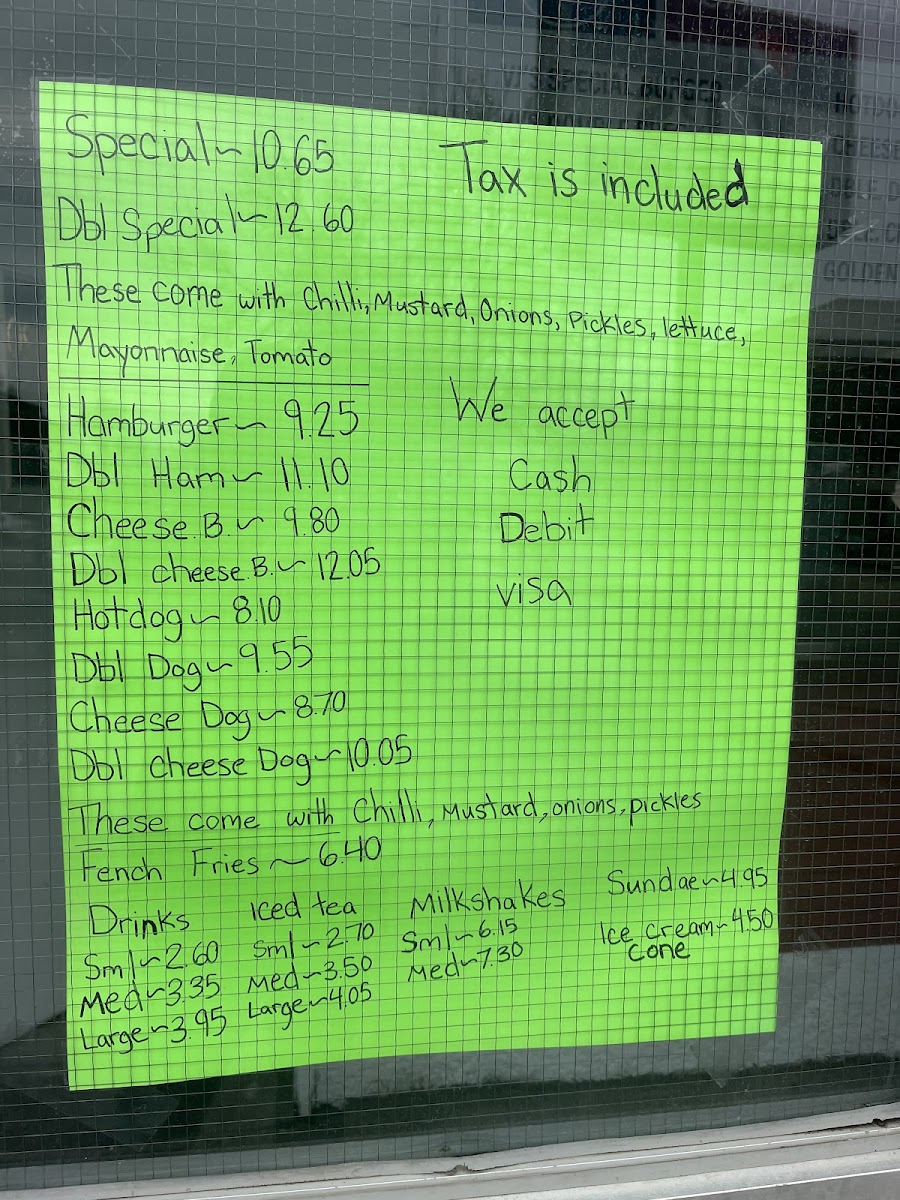 Special~10.65
Tax is included
Dbl Special~12.60
These come with Chilli, Mustard, Onions, Pickles, lettuce,
Mayonnaise, Tomato
Hamburger~ 9.25
Dbl Ham~ 11.10
Cheese.B.~ 9.80
Dbl cheese.B.~ 12.05
Hotdog~ 8.10
Dbl Dog~9.55
Cheese Dog~8.70
Dbl cheese Dog~10.05
We accept
Cash
Debit
visa
These come with Chilli, Mustard, onions, pickles
Fench Fries~6.40
Drinks
Sml~2.60
Med~3.35
Large~3.95
Iced tea
Sml~2.70
Med~3.50
Large~4.05
Milkshakes
Sml~6.15
Med~7.30
Sundae~4.95
Ice cream~4.50
Cone
SPECIAL BURGER
GOLDEN